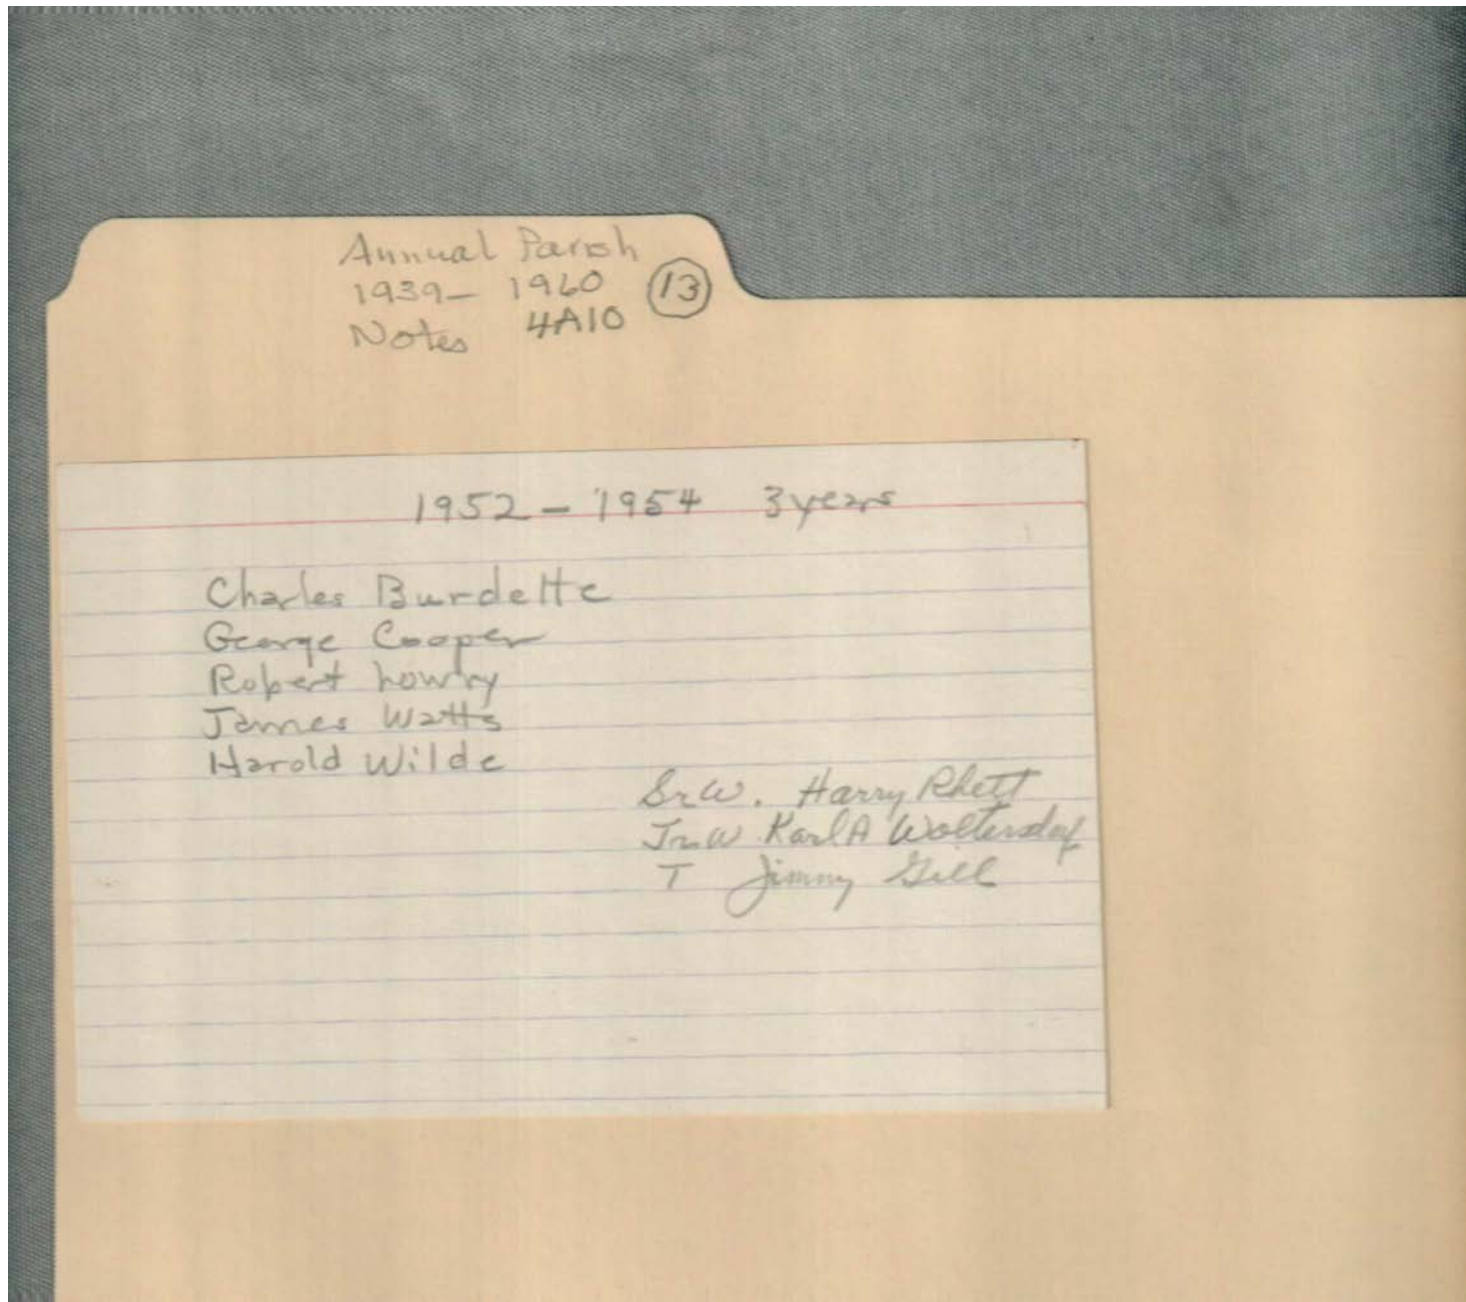 Annual Parish
1939- 1960 13
Notes 4A10
1952 - 1954 3 years
Charles Burdette
George Cooper
Robert Lowry
James Watts
Harold Wilde
Sr W. Harry Rhett
Jr W Karl A Woltersdorf
T Jimmy Gill